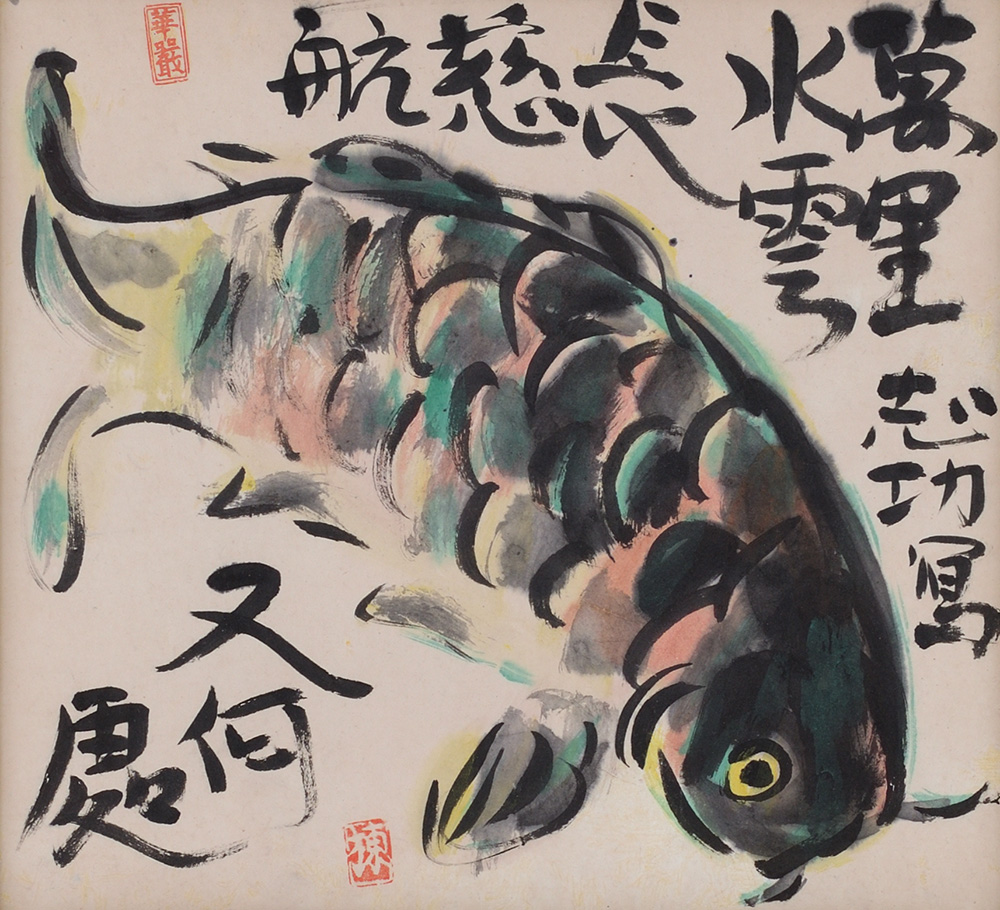 萬里
水雲
長慈航
又何
處
志功寫
華嚴